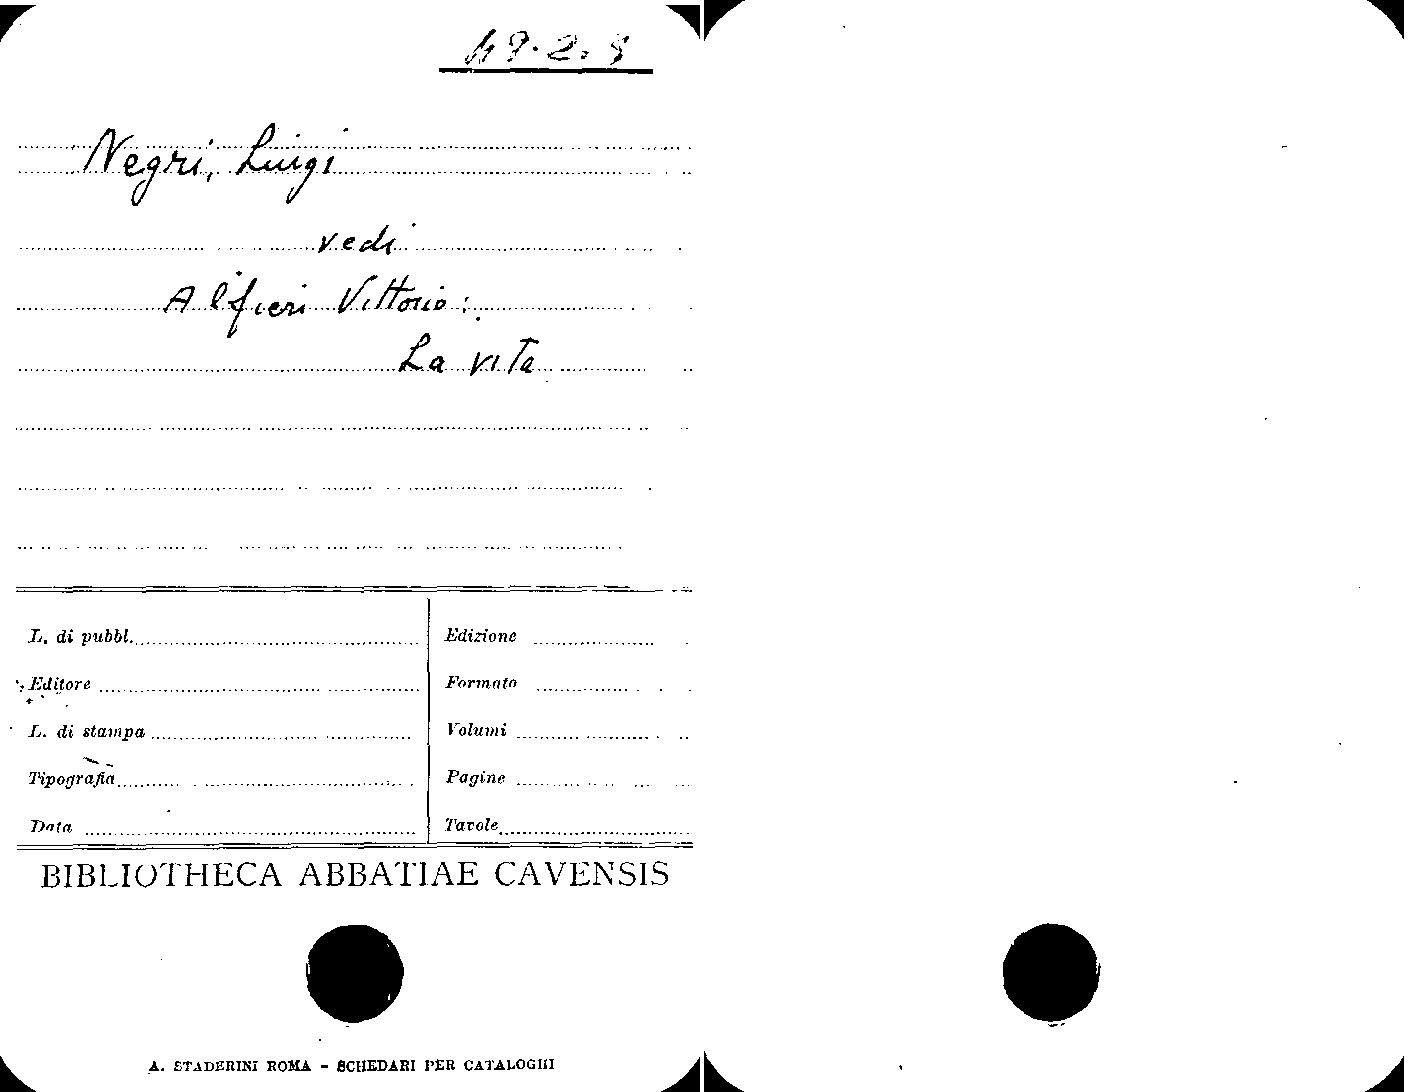 49.2.8
Negri, Luigi
vedi
Alfieri Vittorio:
La vita
L. di pubbl.
Edizione
Editore
Formato
L. di stampa
Volumi
Tipografia
Pagine
Data
Tavole
BIBLIOTHECA ABBATIAE CAVENSIS
A. STADERINI ROMA - SCHEDARI PER CATALOGHI